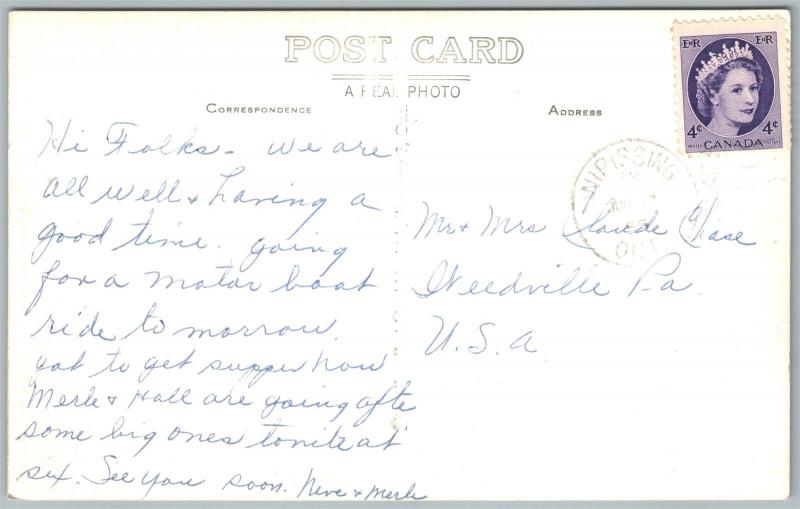 POST CARD
A REAL PHOTO
CORRESPONDENCE
ADDRESS
E R E R
4¢ 4¢
CANADA
NIPISSING
PM
JUN
55
ONT
Hi Folks - we are
all well + having a
good time. going
for a motor boat
ride to morrow.
got to get supper now
Merle + Hall are going afte
some big ones tonite at
six. See you soon. Neve + Merle
Mr + Mrs Claude Chase
Weedville Pa.
U.S.A